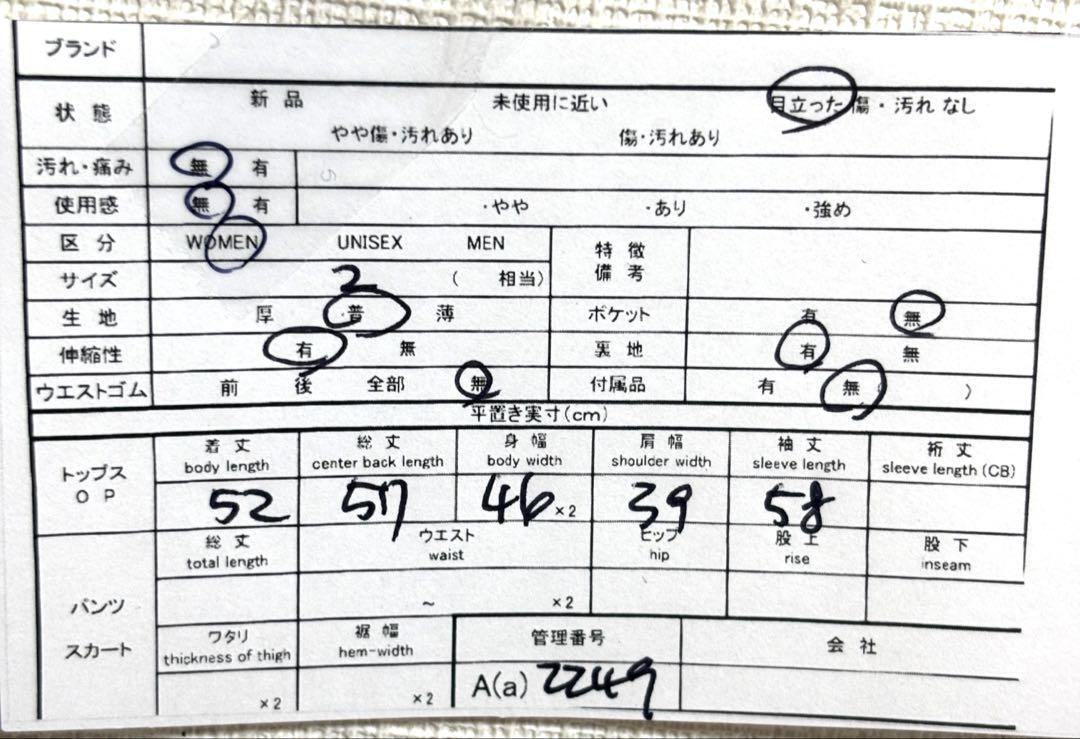 ブランド
状態 新品 未使用に近い 目立った傷・汚れなし
やや傷・汚れあり 傷・汚れあり
汚れ・痛み 無 有
使用感 無 有 ・やや ・あり ・強め
区分 WOMEN UNISEX MEN 特徴
備考
サイズ 2 ( 相当)
生地 厚 普 薄 ポケット 有 無
伸縮性 有 無 裏地 有 無
ウエストゴム 前 後 全部 無 付属品 有 無 ( )
平置き実寸(cm)
トップス
OP
着丈 総丈 身幅 肩幅 袖丈 裄丈
body length center back length body width shoulder width sleeve length sleeve length (CB)
52 57 46 ×2 39 58
パンツ
スカート
総丈 ウエスト ヒップ 股上 股下
total length waist hip rise inseam
～ ×2
ワタリ 裾幅 管理番号 会社
thickness of thigh hem-width
×2 ×2 A(a) 2249